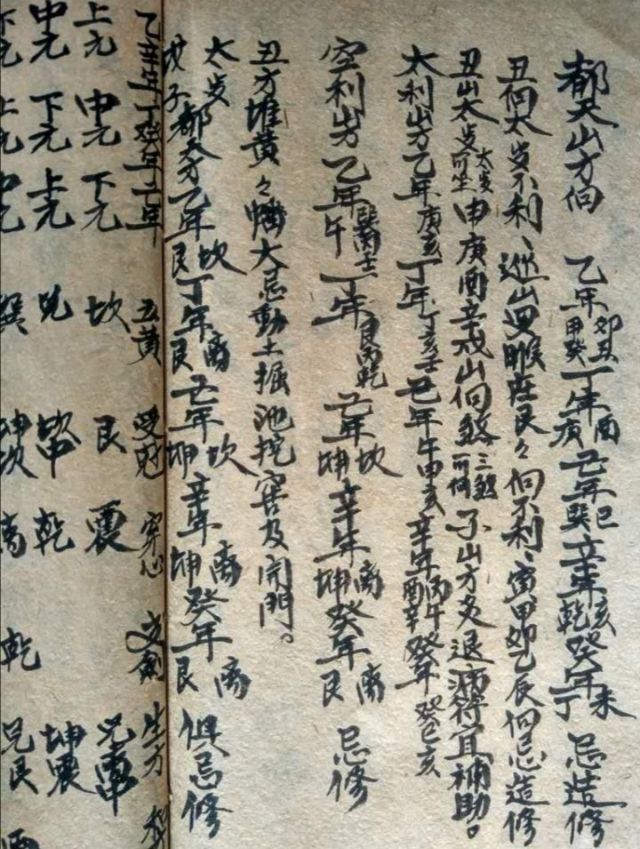 都天山方向 乙年卯丑甲癸 丁年酉庚 己年巳巽 辛年亥乾 癸年未丁 忌造修
丑向太岁不利、巡山羅睺在艮々向不利、寅甲卯乙辰向忌造修
丑山太岁可坐太岁申庚酉辛戌山向煞三煞可向子山方灸退病符宜補助。
太利山方乙年庚亥丁年丁亥壬己年午甲亥辛年丙午酉辛癸年癸巳亥
空利山方乙年午丁年艮丙乾己年坎坤辛年离坤癸年离艮 忌修
丑方堆黄々幡大忌動土掘池挖窖及開門。
太岁戊子都天方乙年坎艮丁年离艮己年坎坤辛年离坤癸年离艮 俱忌修
乙辛年丁癸年己年 五黄 穿心 文劍 生方
上元 中元 下元 坎 艮 震 坤震
中元 下元 上元 兑 坎中 乾 乾
下元 上元 中元 巽 坤坎 离 兑艮